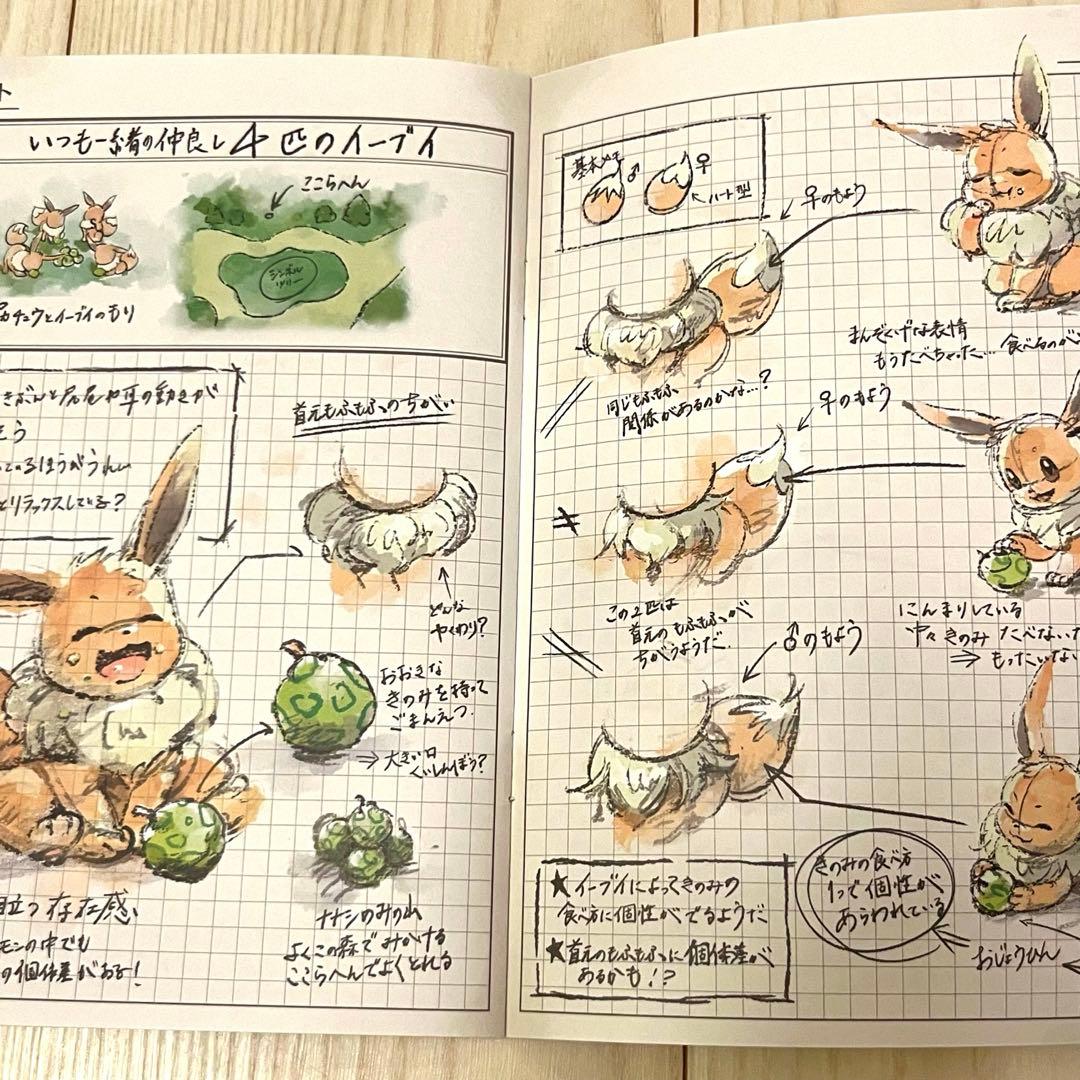 ト
いつも一緒の仲良し4匹のイーブイ
ここらへん
シンボル
ツリー
カチュウとイーブイのもり
きぶんと尻尾や耳の動きが
そう
いるほうがうれしい
とリラックスしている?
首元もふもふのちがい
どんな
やくわり?
おおきな
きのみを持って
ごまんえつ.
⇒大きい口
くいしんぼう?
目立つ存在感、
モンの中でも
の個体差がある!
ナナシのみの山
よくこの森でみかける
ここらへんでよくとれる
基本メモ
♂
♀
ハート型
♀のもよう
同じもふもふ
関係があるのかな…?
まんぞくげな表情
もうたべちゃった… 食べるのが
♀のもよう
この2匹は
首元のもふもふが
ちがうようだ.
にんまりしている
中々きのみ たべない
⇒ もったいない
♂のもよう
きのみの食べ方
1つで個性が
あらわれている
おじょうひん
★イーブイによってきのみの
食べ方に個性がでるようだ
★首元のもふもふに個体差が
あるかも!?